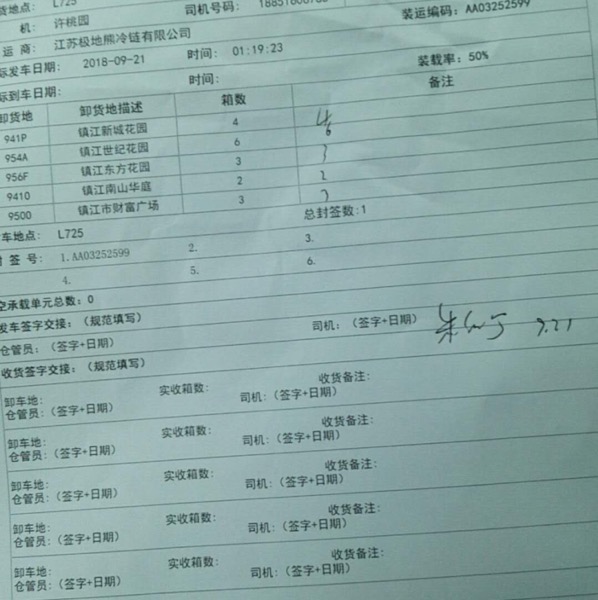 货地点: L725 司机号码: 装运编码: AA03252599
机: 许桃园
运 商: 江苏极地熊冷链有限公司
标发车日期: 2018-09-21 时间: 01:19:23 装载率: 50%
标到车日期: 时间: 备注
卸货地 卸货地描述 箱数
941P 镇江新城花园 4 4
954A 镇江世纪花园 6 6
956F 镇江东方花园 3 3
9410 镇江南山华庭 2 2
9500 镇江市财富广场 3 3
车地点: L725 总封签数:1
封 签 号: 1.AA03252599 2. 3.
4. 5. 6.
空承载单元总数: 0
发车签字交接: (规范填写)
仓管员: (签字+日期) 司机: (签字+日期) 9.21
收货签字交接: (规范填写)
卸车地: 实收箱数: 收货备注:
仓管员: (签字+日期) 司机: (签字+日期)
卸车地: 实收箱数: 收货备注:
仓管员: (签字+日期) 司机: (签字+日期)
卸车地: 实收箱数: 收货备注:
仓管员: (签字+日期) 司机: (签字+日期)
卸车地: 实收箱数: 收货备注:
仓管员: (签字+日期) 司机: (签字+日期)
卸车地: 实收箱数: 收货备注:
仓管员: (签字+日期) 司机: (签字+日期)